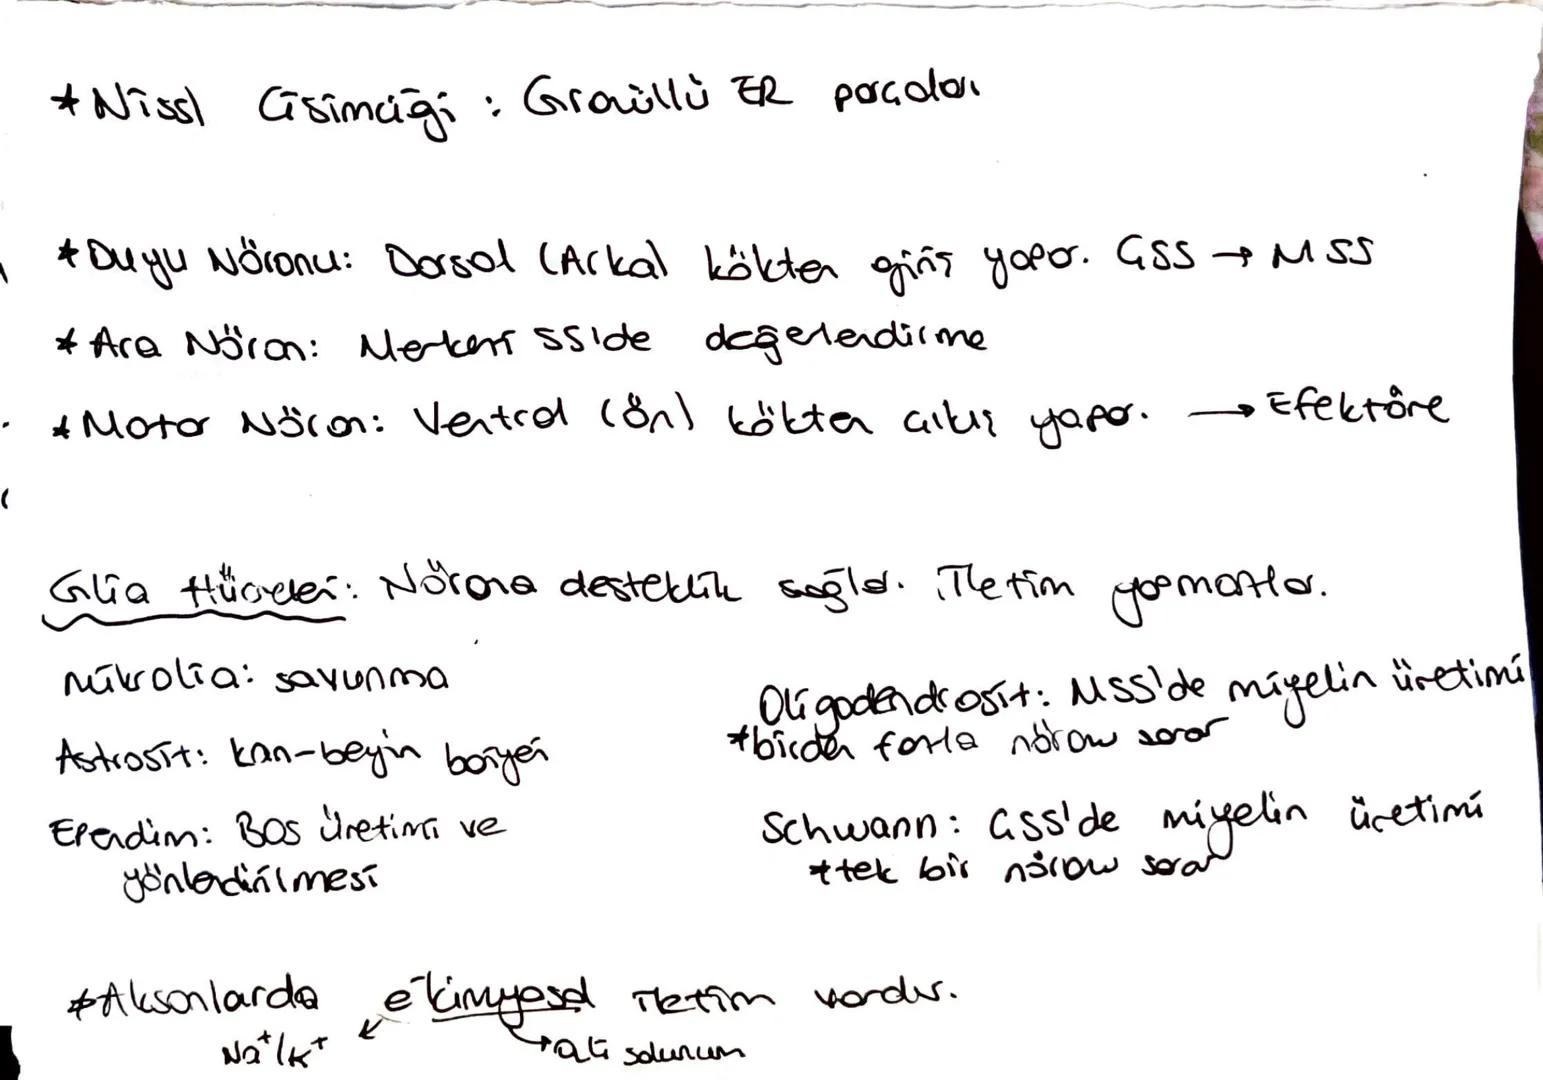 * Nissl Cisimciği : Granüllü ER parçaları
* Duyu Nöronu: Dorsal (Arka) kökten giriş yapar. ÇSS → MSS
* Ara Nöron: Merkezi SS'de değerlendirme
* Motor Nöron: Ventral (ön) kökten çıkış yapar. → Efektöre
Glia Hücreleri: Nörona desteklik sağlar. İletim yapmazlar.
Mikrolia: savunma
Astrosit: kan-beyin bariyeri
Ependim: BOS üretimi ve
yönlendirilmesi
Oligodendrosit: MSS'de miyelin üretimi
* birden fazla nöronu sarar
Schwann: ÇSS'de miyelin üretimi
* tek bir nöronu sarar
* Aksonlarda e⁻kimyasal iletim vardır.
Na⁺/K⁺ → solunum